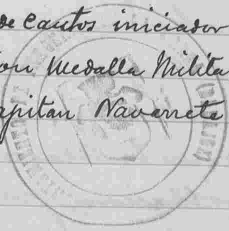 de cantos iniciador
ion Medalla Milita
apitan Navarrete